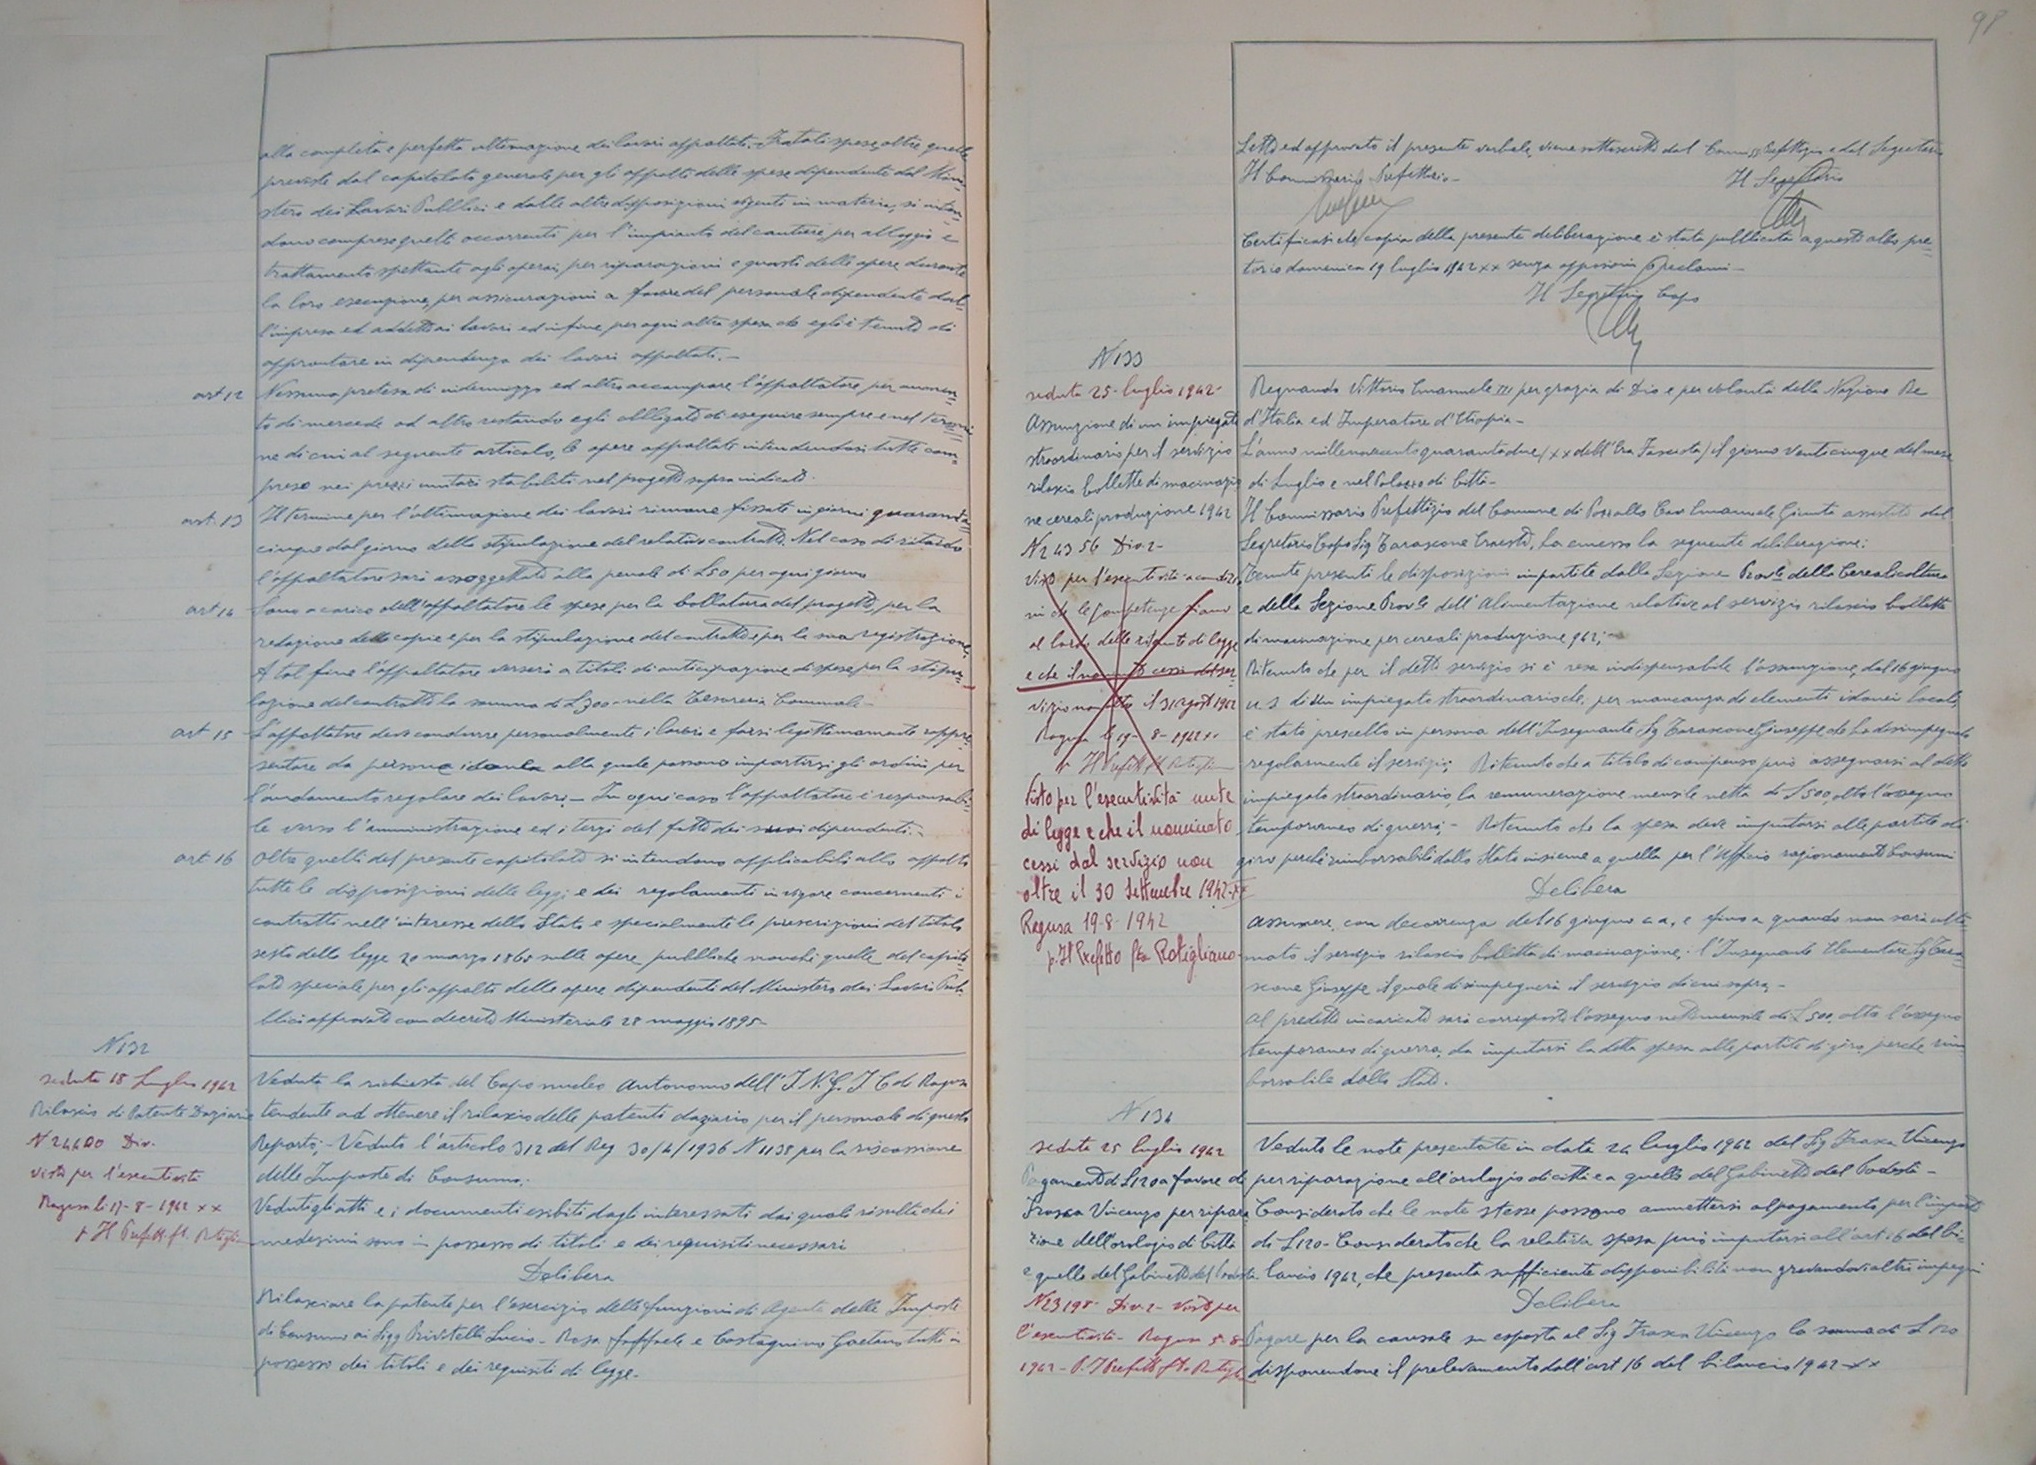 alla completa e perfetta ultimazione dei lavori appaltati. Fra tali spese, oltre quelle
previste dal capitolato generale per gli appalti delle spese dipendente dal Mini-
stero dei Lavori Pubblici e dalle altre disposizioni vigenti in materia, si inten-
dono comprese quelle occorrenti per l'impianto del cantiere, per alloggio e
trattamento spettante agli operai, per riparazioni e guasti delle opere durante
la loro esecuzione, per assicurazioni a favore del personale dipendente dal-
l'impresa ed addetto ai lavori ed infine per ogni altra spesa che egli è tenuto di
approntare in dipendenza dei lavori appaltati.-
art 12 Nessuna pretesa di indennizzo ed altro accampare l'appaltatore per aumen-
to di mercede od altro restando egli obbligato di eseguire sempre e nel termi-
ne di cui al seguente articolo, le opere appaltate intendendosi tutto com-
preso nei prezzi unitari stabiliti nel progetto sopra indicato.
art. 13 Il termine per l'ultimazione dei lavori rimane fissato in giorni quaranta-
cinque dal giorno della stipulazione del relativo contratto. Nel caso di ritardo
l'appaltatore sarà assoggettato alla penale di L 50 per ogni giorno
art 14 Sono a carico dell'appaltatore le spese per la bollatura del progetto, per la
redazione delle copie e per la stipulazione del contratto e per la sua registrazione.
A tal fine l'appaltatore verserà a titolo di anticipazione di spese per la stipu-
lazione del contratto la somma di L 300 - nella Tesoreria Comunale -
art 15 L'appaltatore deve condurre personalmente i lavori e farsi legittimamente rappre-
sentare da persona idonea alla quale possono impartirsi gli ordini per
l'andamento regolare dei lavori. - In ogni caso l'appaltatore è responsabi-
le verso l'amministrazione ed i terzi del fatto dei suoi dipendenti.-
art 16 Oltre quelli del presente capitolato si intendono applicabili allo appalto
tutte le disposizioni delle leggi e dei regolamenti in vigore concernenti i
contratti nell'interesse dello Stato e specialmente le prescrizioni del titolo
sesto della legge 20 marzo 1865 sulle opere pubbliche nonché quelle del capito-
lato speciale per gli appalti delle opere dipendenti del Ministero dei Lavori Pub-
blici approvato con decreto Ministeriale 28 maggio 1895-
N 132
seduta 18 Luglio 1942
Rilascio di Patente Daziarie
N 24400 Div.
Visto per l'esecutività
Ragusa li 17-8-1942 XX
p Il Prefetto fto Rotigliano
Veduta la richiesta del Capo nucleo Autonomo dell' I.N.G.I.C di Ragusa
tendente ad ottenere il rilascio delle patenti daziario per il personale di questo
Reparto; - Veduto l'articolo 312 del Reg 30/4/1936 N 1138 per la riscossione
delle Imposte di Consumo;
Veduti gli atti e i documenti esibiti dagli interessati dai quali risulta che i
medesimi sono in possesso di titoli e dei requisiti necessari
Delibera
Rilasciare la patente per l'esercizio delle funzioni di Agente delle Imposte
di Consumo ai Sigg Privitelli Lucio - Rosa Raffaele e Costaguino Gaetano tutti in
possesso dei titoli e dei requisiti di legge.
98
Letto ed approvato il presente verbale, viene sottoscritto dal Commiss. Prefettizio e dal Segretario
Il Commissario Prefettizio - Il Segretario
Certificasi che copia della presente deliberazione è stata pubblicata a questo albo pre-
torio domenica 19 luglio 1942 XX senza opposizioni o reclami -
Il Segretario Capo
N 133
seduta 25 luglio 1942-
Assunzione di un impiegato
straordinario per il servizio
rilascio bollette di macinazio
ne cereali produzione 1942
N 24356 Div. 2-
Visto per l'esecutività a condizio
ni che le competenze siano
al lordo delle ritenute di legge
e che il nominato cessi dal ser-
vizio non oltre il 31 agosto 1942
Ragusa li 19-8-1942 XX
p Il Prefetto fto Rotigliano
Visto per l'esecutività
di legge e che il nominato
cessi dal servizio non
oltre il 30 Settembre 1942-XX
Ragusa 19-8-1942
p. Il Prefetto fto Rotigliano-
Regnando Vittorio Emanuele III per grazia di Dio e per volontà della Nazione Re
d'Italia ed Imperatore d'Etiopia -
L'anno millenovecentoquarantadue (XX dell'Era Fascista) il giorno venticinque del mese
di Luglio e nel Palazzo di Città -
Il Commissario Prefettizio del Comune di Pozzallo Cav Emanuele Giunta assistito dal
Segretario Capo Sig Tarascone Ernesto, ha emesso la seguente deliberazione:
Tenute presenti le disposizioni impartite dalla Sezione Prov/le della Cerealicoltura
e della Sezione Prov/le dell'Alimentazione relative al servizio rilascio bollette
di macinazione per cereali produzione 942;
Ritenuto che per il detto servizio si è resa indispensabile l'assunzione, dal 16 giugno
u.s di un impiegato straordinario che, per mancanza di elementi idonei locali,
è stato prescelto in persona dell'Insegnante Sig Tarascone Giuseppe che ha disimpegnato
regolarmente il servizio; Ritenuto che a titolo di compenso può assegnarsi al detto
impiegato straordinario, la remunerazione mensile netta di L 500, oltre l'assegno
temporaneo di guerra; - Ritenuto che la spesa deve imputarsi alle partite di
giro perché rimborsabili dallo Stato insieme a quella per l'Ufficio razionamento Consumi
Delibera
assumere, con decorrenza del 16 giugno c.a, e fino a quando non sarà ulti-
mato il servizio rilascio bolletta di macinazione; l'Insegnante Elementare Sig Tara-
scone Giuseppe il quale disimpegnerà il servizio di cui sopra -
Al predetto incaricato sarà corrisposto l'assegno netto mensile di L 500, oltre l'assegno
temporaneo di guerra, da imputarsi la detta spesa alle partite di giro, perché rim
borsabile dallo Stato.
N 134
seduta 25 luglio 1942
Pagamento di L 120 a favore di
Frasca Vincenzo per ripara
zione dell'orologio di città
e quello del Gabinetto del Podestà
N 23198- Div. 2- Visto per
l'esecutività - Ragusa 5-8-
1942 - P. Il Prefetto fto Rotigliano
Veduto le note presentate in data 24 luglio 1942 del Sig Frasca Vincenzo
per riparazione all'orologio di città e a quello del Gabinetto del Podestà -
Considerato che le note stesse possono ammettersi al pagamento per l'importo
di L 120 - Considerato che la relativa spesa può imputarsi all'art 16 del bi-
lancio 1942, che presenta sufficiente disponibilità non gravandovi altri impegni
Delibera
Pagare per la causale su esposta al Sig Frasca Vincenzo la somma di L 120
disponendone il prelevamento dall'art 16 del bilancio 1942-XX